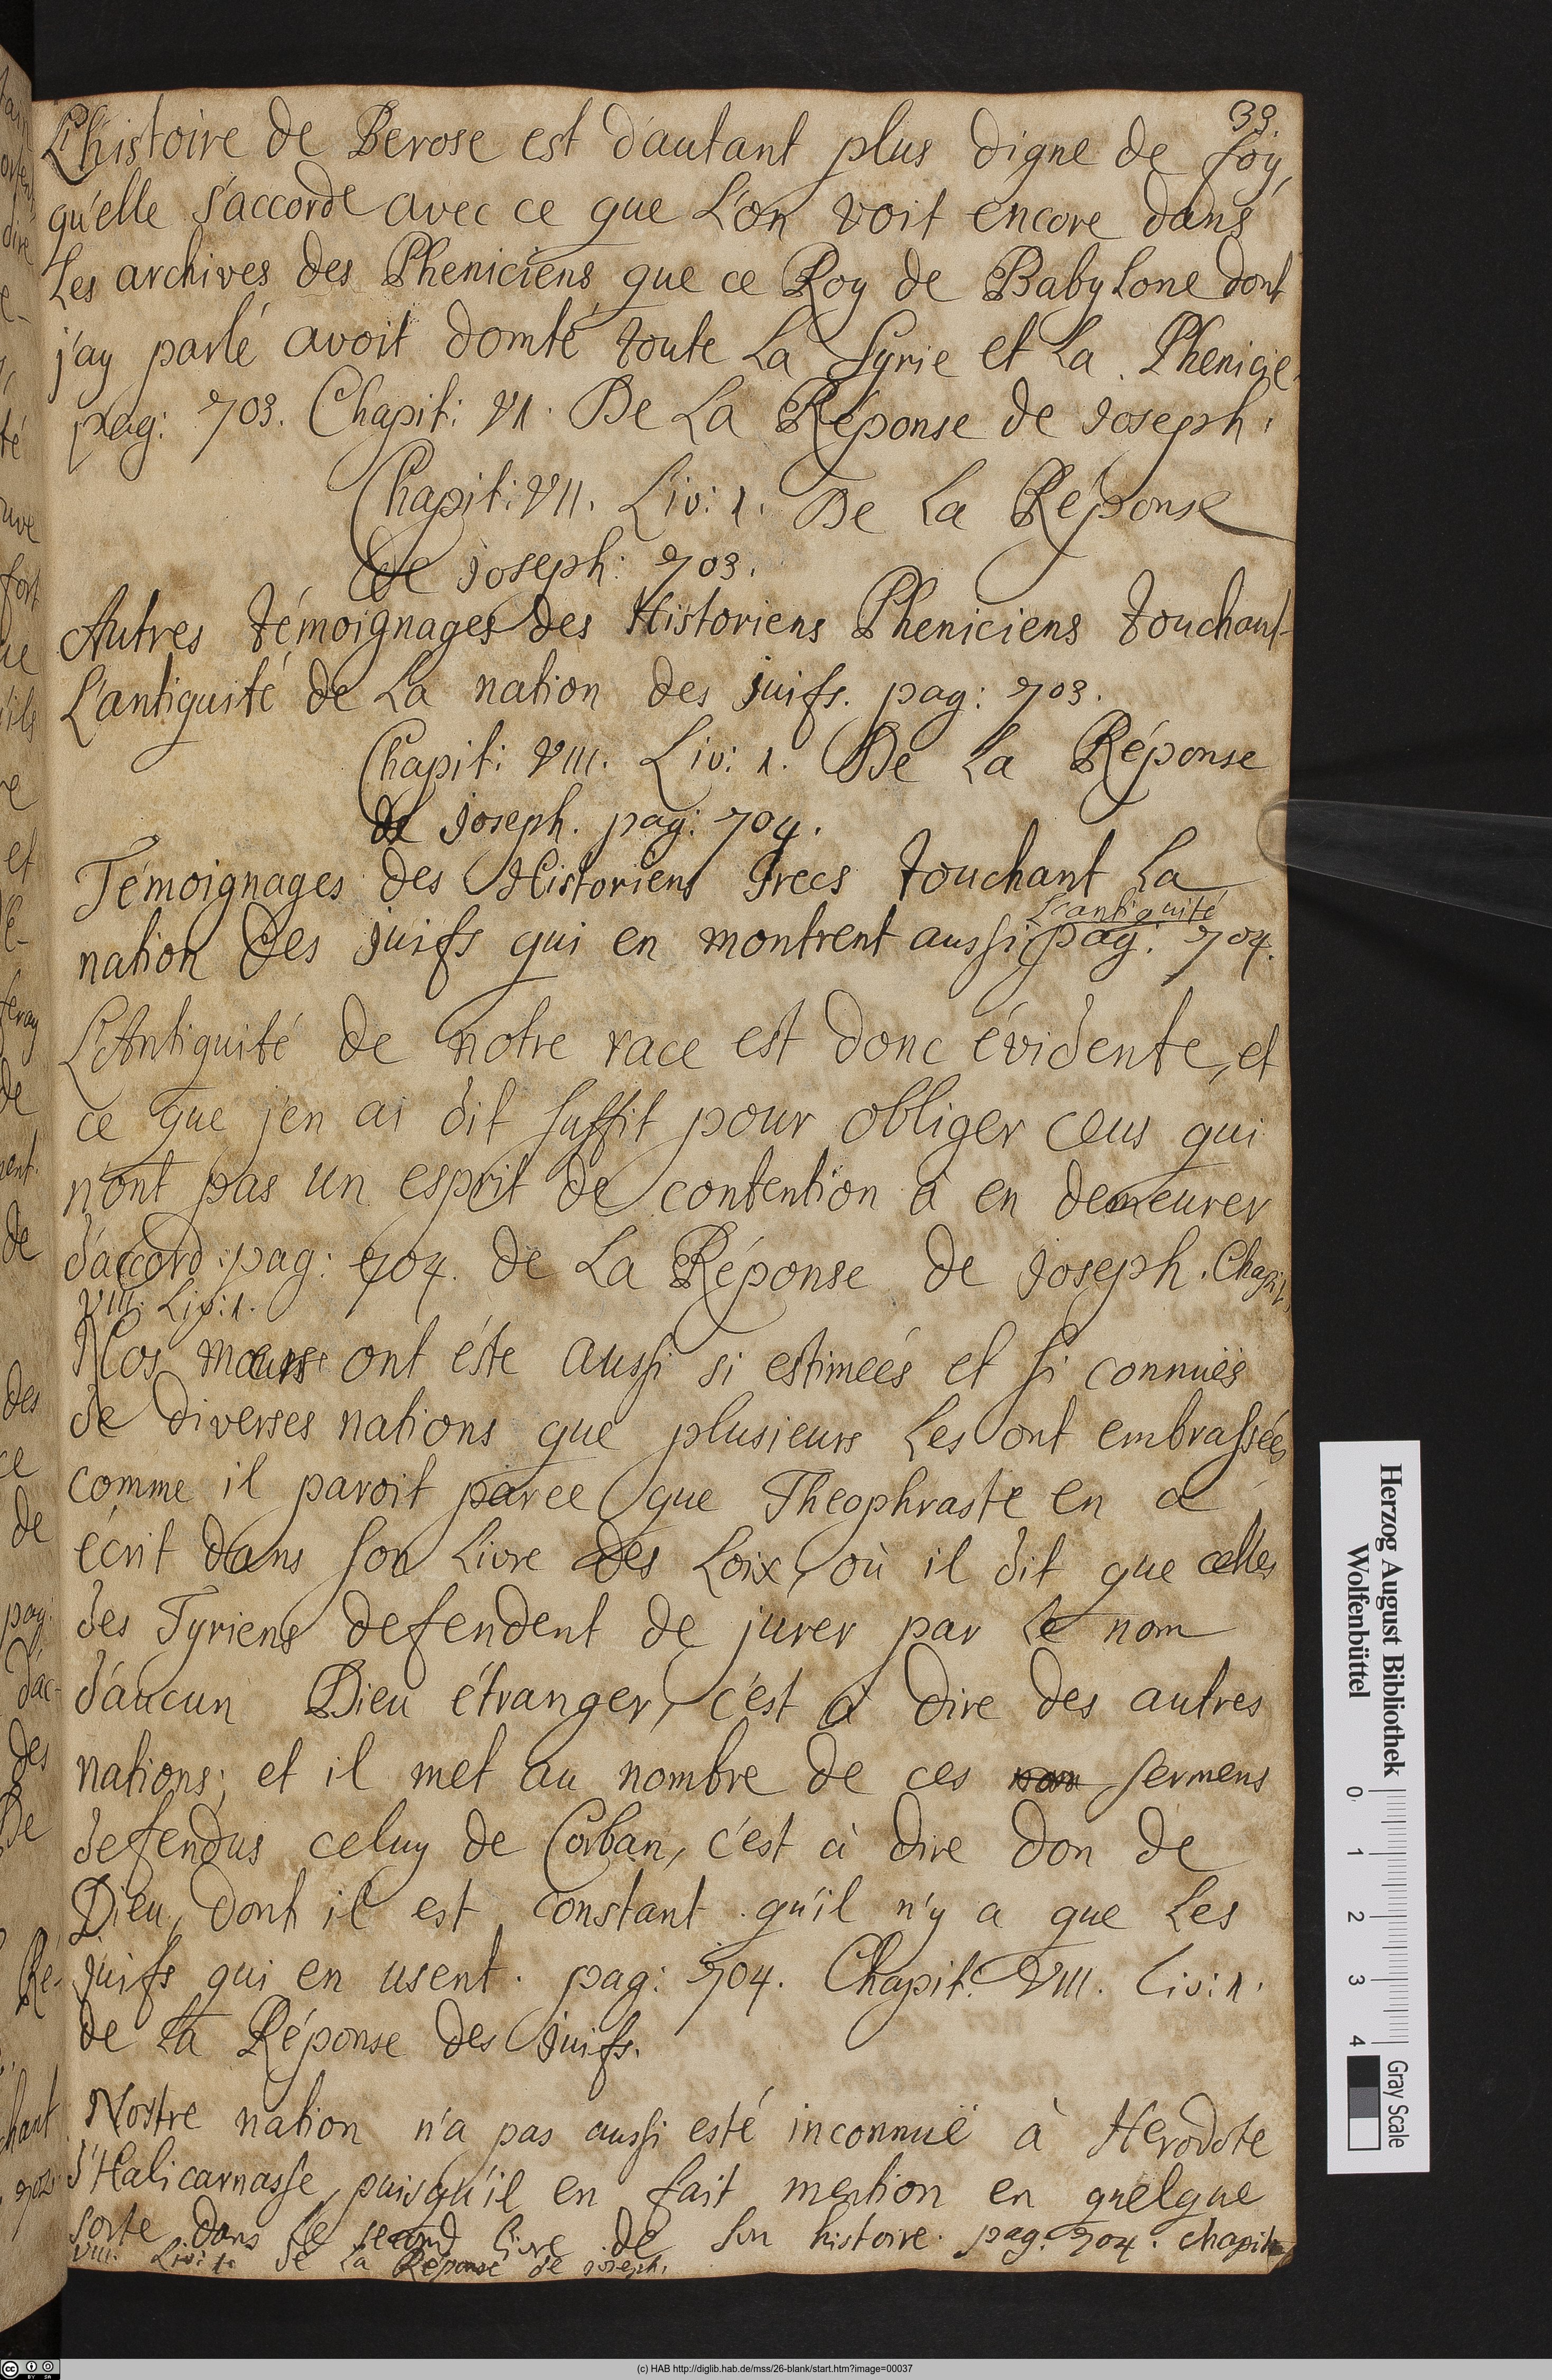 39.
L'histoire de Berose est d'autant plus digne de foy,
qu'elle s'accorde avec ce que L'on voit encore dans
Les archives des Pheniciens, que ce Roy de Babylone dont
j'ay parlé avoit domté toute La Syrie et La Phenicie.
pag: 703. Chapit: VI. De La Réponse de Joseph:
Chapit: VII. Liv: 1. De La Réponse
de Joseph: 703.
Autres témoignages des Historiens Pheniciens touchant
L'antiquité de La nation des juifs. pag: 703.
Chapit: VIII. Liv: 1. De La Réponse
de Joseph. pag: 704.
Témoignages des Historiens Grecs touchant La
L'antiquité
nation des juifs qui en montrent aussi pag: 704.
L'Antiquité de notre race est donc évidente, et
ce que j'en ai dit suffit pour obliger ceus qui
n'ont pas un esprit de contention à en demeurer
d'accord. pag: 704. de La Réponse de Joseph. Chapit.
VIII. Liv: 1.
Nos mœurs ont éste aussi si estimeés et si connuës
de diverses nations que plusieurs Les ont embrassées
comme il paroit parce que Theophraste en a
écrit dans son Livre des Loix, où il dit que celles
des Tyriens defendent de jurer par Le nom
d'aucun Dieu étranger, c'est à dire des autres
nations; et il met au nombre de ces sermens
defendus celuy de Corban, c'est à dire don de
Dieu, dont il est constant qu'il n'y a que Les
juifs qui en usent. pag: 704. Chapit: VIII. Liv: 1.
de La Réponse des Juifs.
Nostre nation n'a pas aussi esté inconnuë à Herodote
d'Halicarnasse, puisqu'il en fait mention en quelque
sorte dans Le second livre de son histoire. pag: 704. chapit
VIII. Liv: 1. de La Réponse de joseph.
Herzog August Bibliothek
Wolfenbüttel
0 1 2 3 4
Gray Scale
(c) HAB http://diglib.hab.de/mss/26-blank/start.htm?image=00037